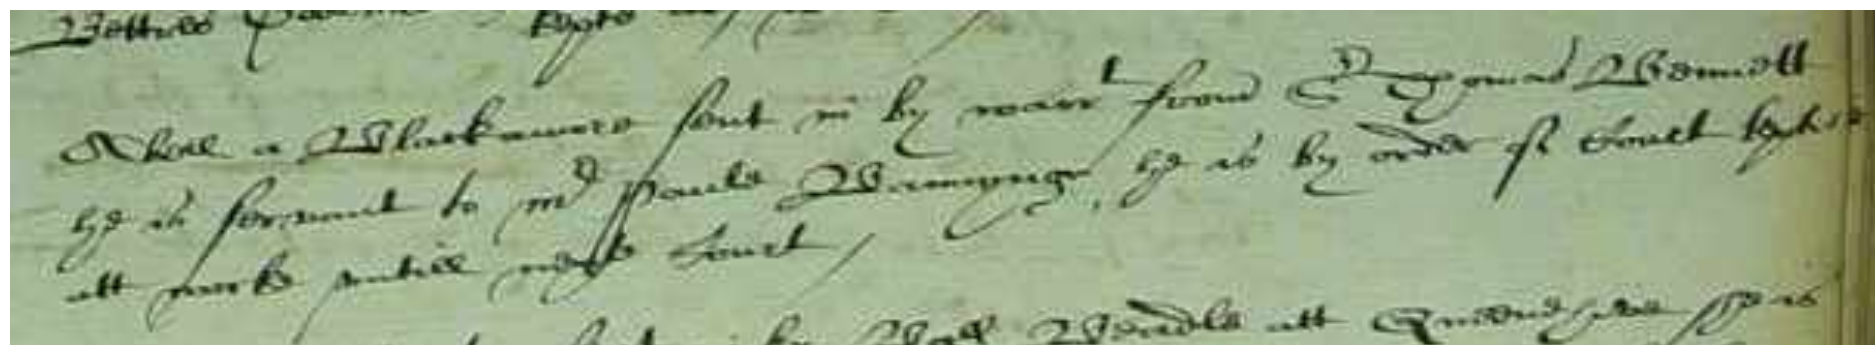 Abell a Blackamore sent in by warr^t from S^r Thomas Bennett
he is servant to m^r Paule Bannynge, he is by order of Court kepte
att worke untill next Court /
by Ward att Queenehythe she is